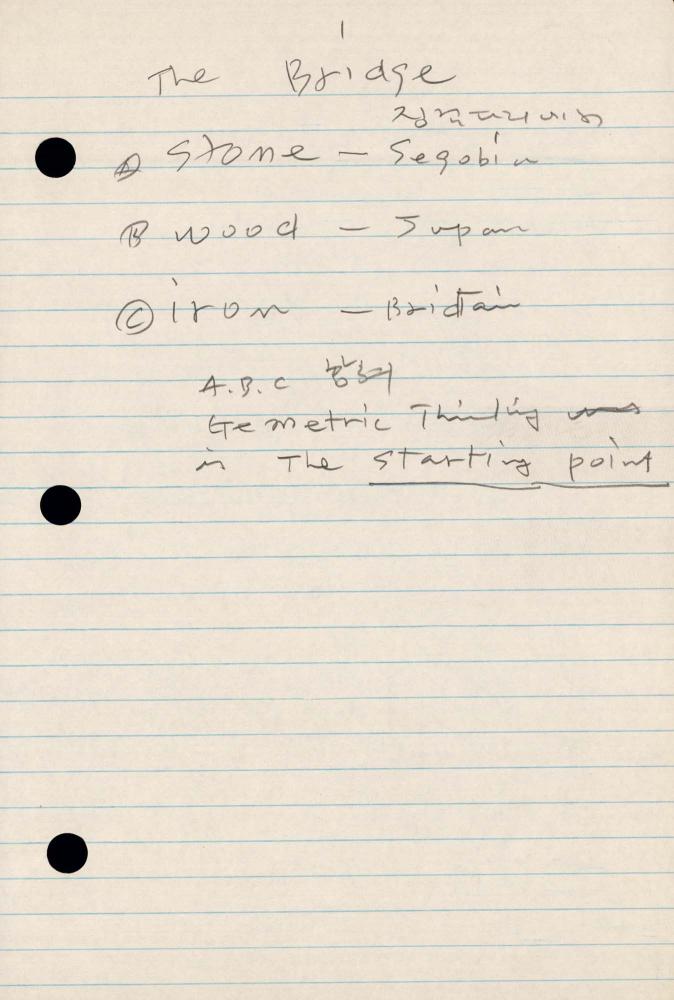 1
The Bridge
징검다리
Ⓐ Stone – Segobia
Ⓑ wood – Japan
Ⓒ iron – Bridtain
A.B.C 합하여
Gemetric Thinking
is The starting point